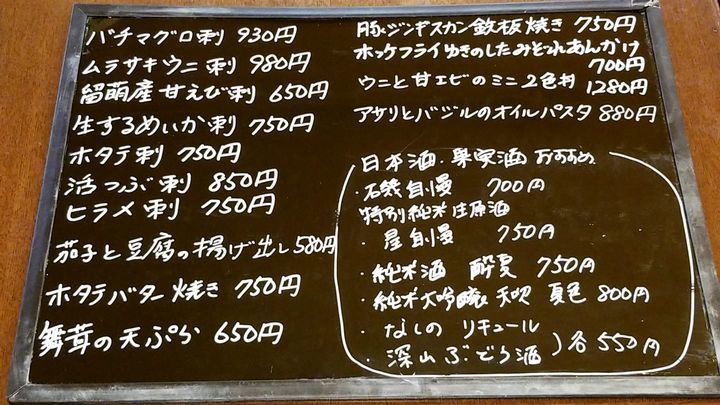 バチマグロ刺 930円
ムラサキウニ刺 980円
留萌産甘えび刺 650円
生するめいか刺 750円
ホタテ刺 750円
活つぶ刺 850円
ヒラメ刺 750円
茄子と豆腐の揚げ出し 580円
ホタテバター焼き 750円
舞茸の天ぷら 650円
豚ジンギスカン鉄板焼き 750円
ホッケフライゆきのしたみぞれあんかけ
700円
ウニと甘エビのミニ2色丼 1280円
アサリとバジルのオイルパスタ 880円
日本酒・果実酒 おすすめ
・石鎚 自慢 700円
特別純米生原酒
・屋自慢 750円
・純米酒 酔夏 750円
・純米大吟醸 天吹 夏色 800円
・なしの リキュール
・深山ぶどう酒 ) 各550円